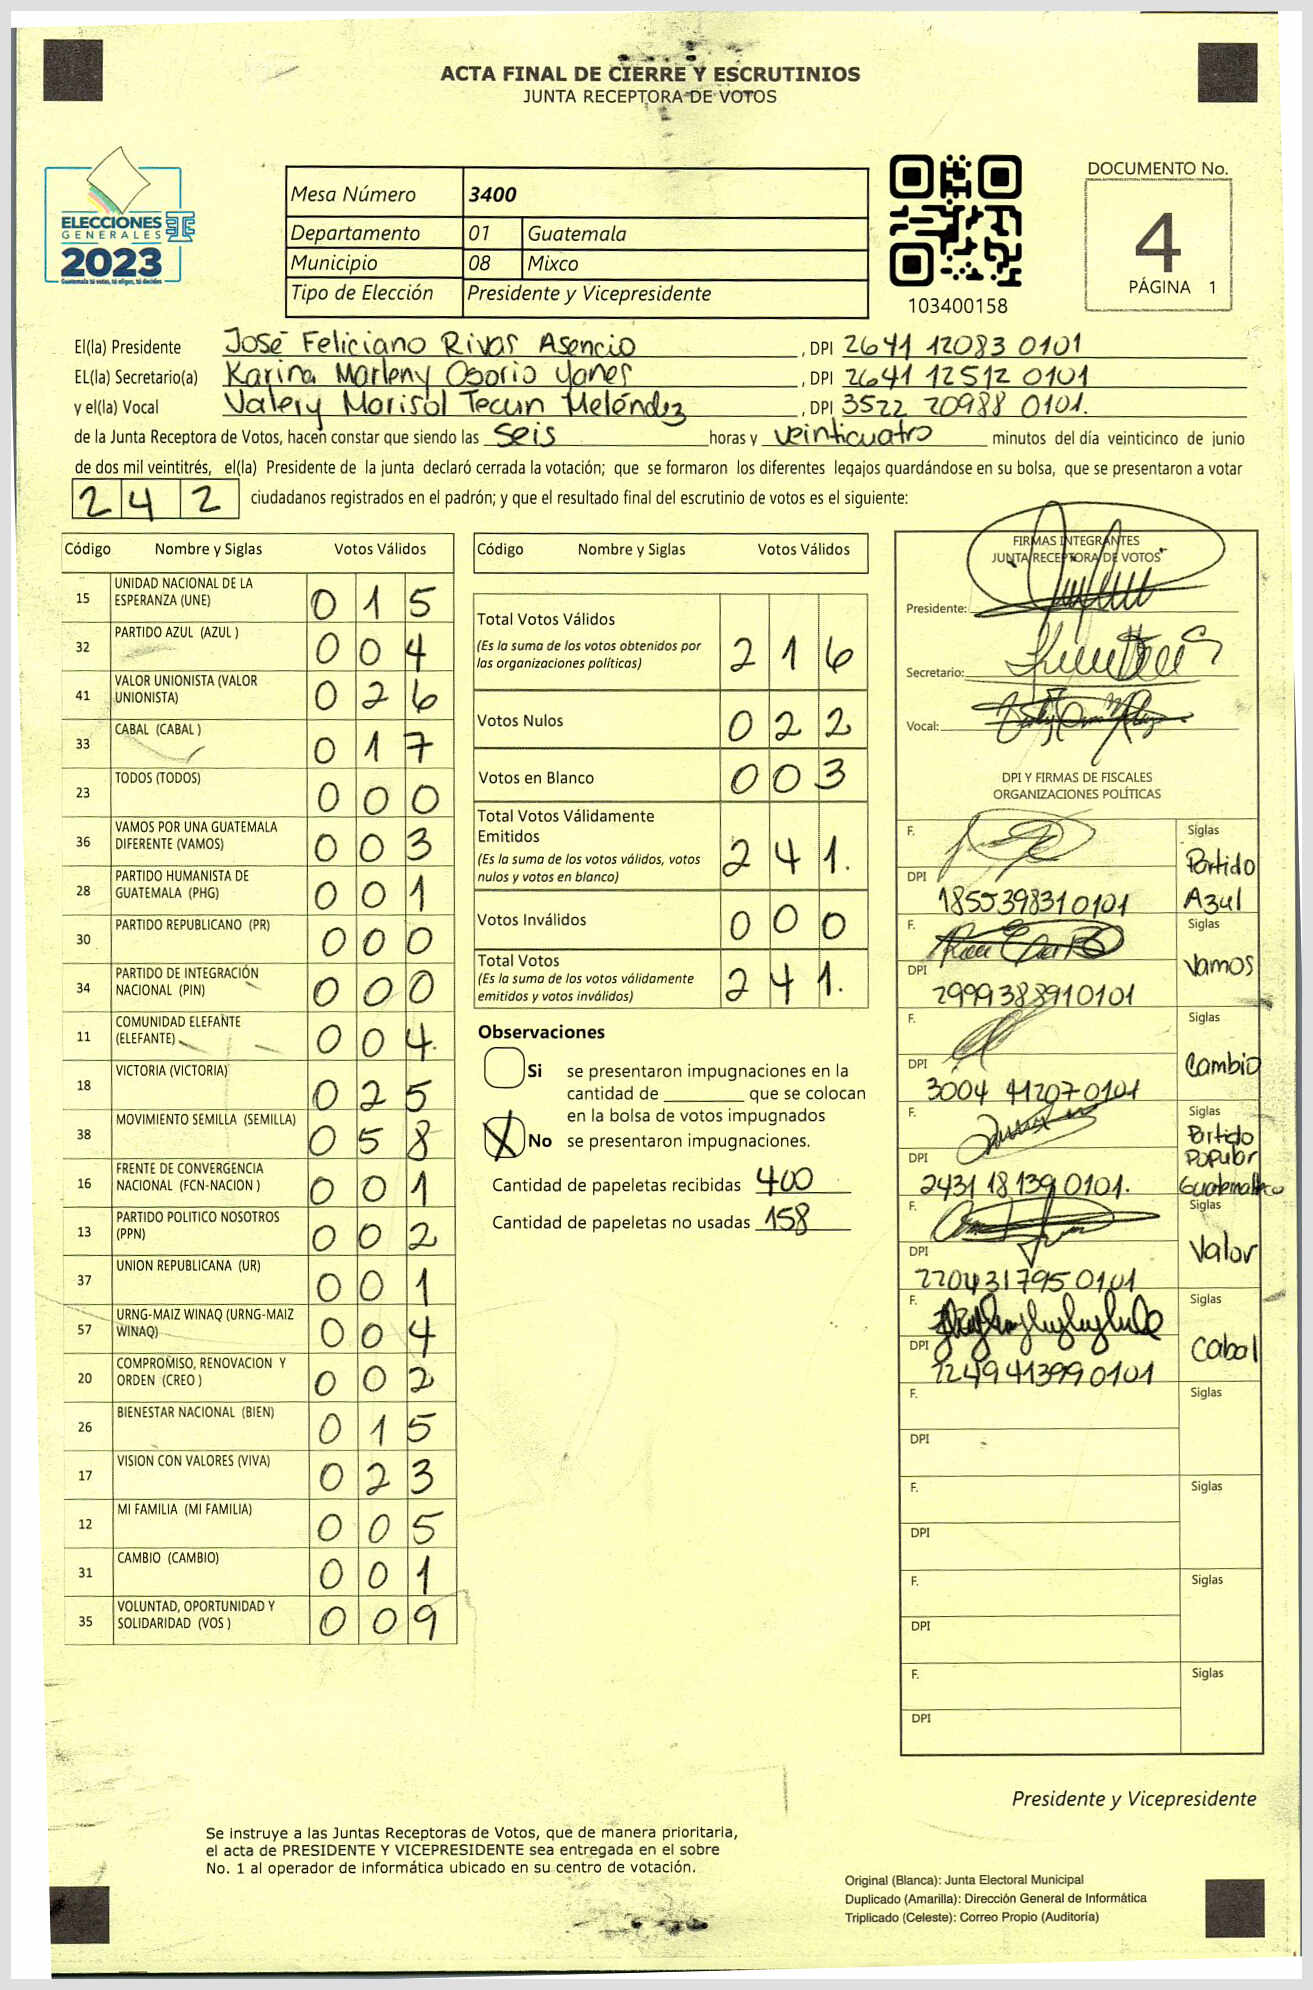 ACTA FINAL DE CIERRE Y ESCRUTINIOS
JUNTA RECEPTORA DE VOTOS
ELECCIONES
GENERALES
2023
Guatemala tú votas, tú eliges, tú decides
Mesa Número 3400
Departamento 01 Guatemala
Municipio 08 Mixco
Tipo de Elección Presidente y Vicepresidente
103400158
DOCUMENTO No.
4
PÁGINA 1
El(la) Presidente José Feliciano Rivas Asencio, DPI 2641 12083 0101
EL(la) Secretario(a) Karina Marleny Osorio Yanes, DPI 2641 12512 0101
y el(la) Vocal Valery Marisol Tecun Meléndez, DPI 3522 20988 0101.
de la Junta Receptora de Votos, hacen constar que siendo las seis horas y veinticuatro minutos del día veinticinco de junio
de dos mil veintitrés, el(la) Presidente de la junta declaró cerrada la votación; que se formaron los diferentes legajos guardándose en su bolsa, que se presentaron a votar
242 ciudadanos registrados en el padrón; y que el resultado final del escrutinio de votos es el siguiente:
Código Nombre y Siglas Votos Válidos
15 UNIDAD NACIONAL DE LA ESPERANZA (UNE) 015
32 PARTIDO AZUL (AZUL ) 004
41 VALOR UNIONISTA (VALOR UNIONISTA) 026
33 CABAL (CABAL ) 017
23 TODOS (TODOS) 000
36 VAMOS POR UNA GUATEMALA DIFERENTE (VAMOS) 003
28 PARTIDO HUMANISTA DE GUATEMALA (PHG) 001
30 PARTIDO REPUBLICANO (PR) 000
34 PARTIDO DE INTEGRACIÓN NACIONAL (PIN) 000
11 COMUNIDAD ELEFANTE (ELEFANTE) 004.
18 VICTORIA (VICTORIA) 025
38 MOVIMIENTO SEMILLA (SEMILLA) 058
16 FRENTE DE CONVERGENCIA NACIONAL (FCN-NACION ) 001
13 PARTIDO POLITICO NOSOTROS (PPN) 002
37 UNION REPUBLICANA (UR) 001
57 URNG-MAIZ WINAQ (URNG-MAIZ WINAQ) 004
20 COMPROMISO, RENOVACION Y ORDEN (CREO ) 002
26 BIENESTAR NACIONAL (BIEN) 015
17 VISION CON VALORES (VIVA) 023
12 MI FAMILIA (MI FAMILIA) 005
31 CAMBIO (CAMBIO) 001
35 VOLUNTAD, OPORTUNIDAD Y SOLIDARIDAD (VOS ) 009
Código Nombre y Siglas Votos Válidos
Total Votos Válidos
(Es la suma de los votos obtenidos por
las organizaciones políticas) 216
Votos Nulos 022
Votos en Blanco 003
Total Votos Válidamente
Emitidos
(Es la suma de los votos válidos, votos
nulos y votos en blanco) 241.
Votos Inválidos 000
Total Votos
(Es la suma de los votos válidamente
emitidos y votos inválidos) 241.
Observaciones
Si se presentaron impugnaciones en la
cantidad de ________ que se colocan
en la bolsa de votos impugnados
X No se presentaron impugnaciones.
Cantidad de papeletas recibidas 400
Cantidad de papeletas no usadas 158
FIRMAS INTEGRANTES
JUNTA RECEPTORA DE VOTOS
Presidente:
Secretario:
Vocal:
DPI Y FIRMAS DE FISCALES
ORGANIZACIONES POLÍTICAS
F. Siglas
Partido
DPI 1855398310101 Azul
F. Siglas
Vamos
DPI 2999388910101
F. Siglas
Cambio
DPI 3004 41207 0101
F. Siglas
Partido
Popular
DPI 2431 18139 0101. Guatemalteco
F. Siglas
Valor
DPI 2204317950101
F. Siglas
Cabal
DPI 2249413990101
F. Siglas
DPI
F. Siglas
DPI
F. Siglas
DPI
F. Siglas
DPI
Presidente y Vicepresidente
Se instruye a las Juntas Receptoras de Votos, que de manera prioritaria,
el acta de PRESIDENTE Y VICEPRESIDENTE sea entregada en el sobre
No. 1 al operador de informática ubicado en su centro de votación.
Original (Blanca): Junta Electoral Municipal
Duplicado (Amarilla): Dirección General de Informática
Triplicado (Celeste): Correo Propio (Auditoría)